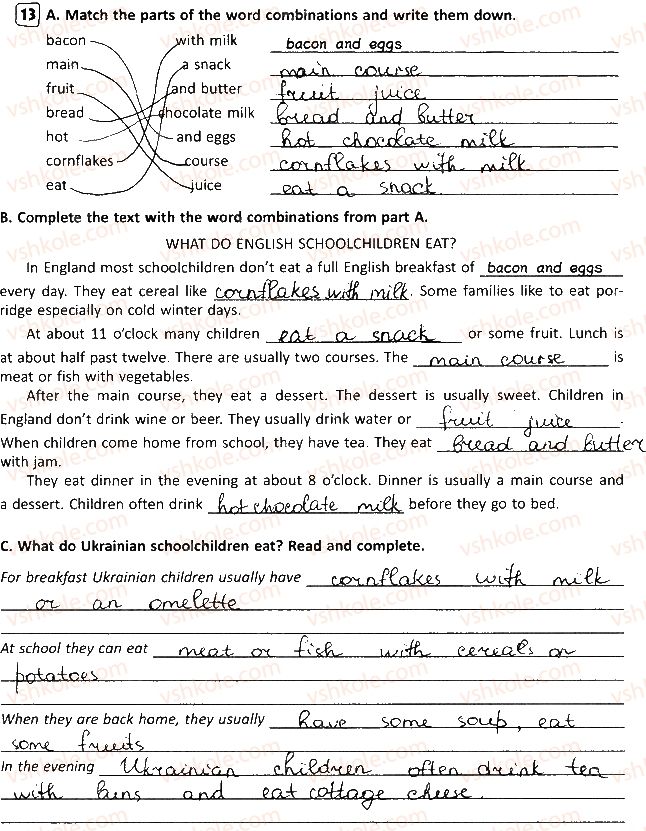 13 A. Match the parts of the word combinations and write them down.
bacon with milk bacon and eggs
main a snack main course
fruit and butter fruit juice
bread chocolate milk bread and butter
hot and eggs hot chocolate milk
cornflakes course cornflakes with milk
eat juice eat a snack
B. Complete the text with the word combinations from part A.
WHAT DO ENGLISH SCHOOLCHILDREN EAT?
In England most schoolchildren don't eat a full English breakfast of bacon and eggs
every day. They eat cereal like cornflakes with milk. Some families like to eat por-
ridge especially on cold winter days.
At about 11 o'clock many children eat a snack or some fruit. Lunch is
at about half past twelve. There are usually two courses. The main course is
meat or fish with vegetables.
After the main course, they eat a dessert. The dessert is usually sweet. Children in
England don't drink wine or beer. They usually drink water or fruit juice.
When children come home from school, they have tea. They eat bread and butter
with jam.
They eat dinner in the evening at about 8 o'clock. Dinner is usually a main course and
a dessert. Children often drink hot chocolate milk before they go to bed.
C. What do Ukrainian schoolchildren eat? Read and complete.
For breakfast Ukrainian children usually have cornflakes with milk
or an omelette
At school they can eat meat or fish with cereals or
potatoes
When they are back home, they usually have some soup, eat
some fruits
In the evening Ukrainian children often drink tea
with buns and eat cottage cheese.